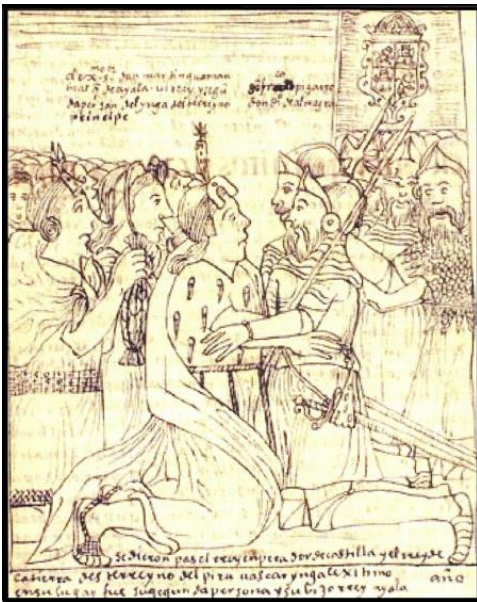 el exmo Sr. don martin guaman
de ayala uirrey y segū
da per son del ynga deste rreyno
principe
don franco pizarro
don di de almagro
se dieron pas el rrey enperador de castilla y el rrey de
la tierra des te rreyno del piru uascar ynga lexitimo año
en su lugar fue su segunda persona y su bizorrey ayala